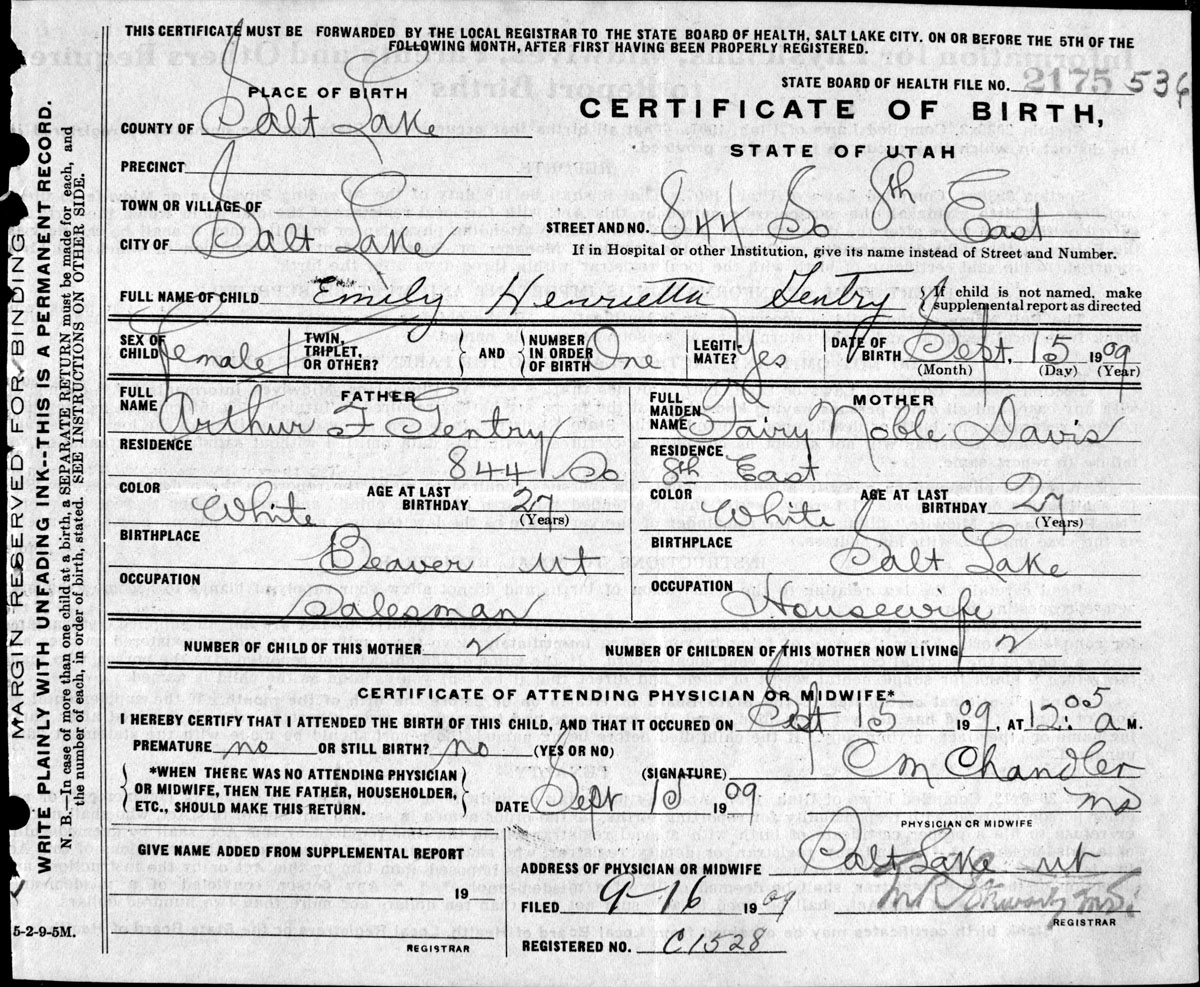 THIS CERTIFICATE MUST BE FORWARDED BY THE LOCAL REGISTRAR TO THE STATE BOARD OF HEALTH, SALT LAKE CITY. ON OR BEFORE THE 5TH OF THE
FOLLOWING MONTH, AFTER FIRST HAVING BEEN PROPERLY REGISTERED.
STATE BOARD OF HEALTH FILE NO. 2175 536
PLACE OF BIRTH
CERTIFICATE OF BIRTH,
STATE OF UTAH
COUNTY OF Salt Lake
PRECINCT
TOWN OR VILLAGE OF
CITY OF Salt Lake
STREET AND NO. 844 So 8th East
If in Hospital or other Institution, give its name instead of Street and Number.
FULL NAME OF CHILD Emily Henrietta Gentry
If child is not named, make
supplemental report as directed
SEX OF CHILD female
TWIN, TRIPLET, OR OTHER?
AND
NUMBER IN ORDER OF BIRTH One
LEGITI- MATE? Yes
DATE OF BIRTH Sept. 15 1909
(Month) (Day) (Year)
FATHER
FULL NAME Arthur F Gentry
MOTHER
FULL MAIDEN NAME Fairy Noble Davis
RESIDENCE 844 So
RESIDENCE 8th East
COLOR White
AGE AT LAST BIRTHDAY 27
(Years)
COLOR White
AGE AT LAST BIRTHDAY 27
(Years)
BIRTHPLACE Beaver Ut
BIRTHPLACE Salt Lake
OCCUPATION Salesman
OCCUPATION Housewife
NUMBER OF CHILD OF THIS MOTHER 2
NUMBER OF CHILDREN OF THIS MOTHER NOW LIVING 2
CERTIFICATE OF ATTENDING PHYSICIAN OR MIDWIFE*
I HEREBY CERTIFY THAT I ATTENDED THE BIRTH OF THIS CHILD, AND THAT IT OCCURED ON Sept 15 1909 AT 12:05 a M.
PREMATURE no OR STILL BIRTH? no (YES OR NO)
*WHEN THERE WAS NO ATTENDING PHYSICIAN
OR MIDWIFE, THEN THE FATHER, HOUSEHOLDER,
ETC., SHOULD MAKE THIS RETURN.
(SIGNATURE) C M Chandler
DATE Sept 15 1909
MD
PHYSICIAN OR MIDWIFE
GIVE NAME ADDED FROM SUPPLEMENTAL REPORT
19
REGISTRAR
ADDRESS OF PHYSICIAN OR MIDWIFE Salt Lake Ut
FILED 9 16 1909
REGISTRAR
REGISTERED NO. C1528
5-2-9-5M.
MARGIN RESERVED FOR BINDING
WRITE PLAINLY WITH UNFADING INK--THIS IS A PERMANENT RECORD.
N. B.—In case of more than one child at a birth, a SEPARATE RETURN must be made for each, and
the number of each, in order of birth, stated. SEE INSTRUCTIONS ON OTHER SIDE.